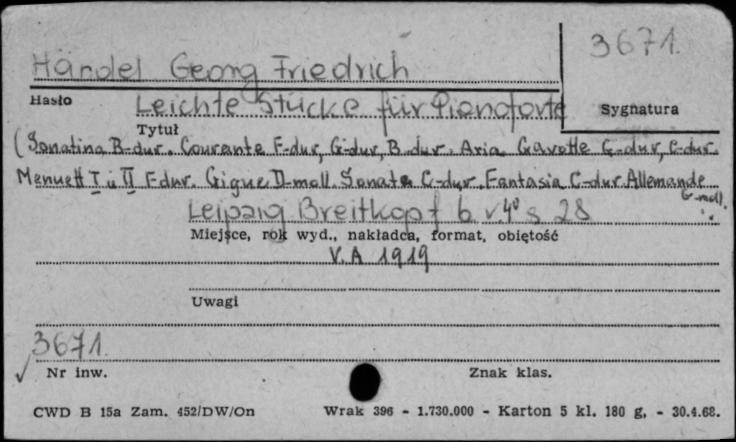 Händel Georg Friedrich
3671.
Hasło
Leichte Stücke für Pianoforte
Sygnatura
Tytuł
(Sonatina B-dur. Courante F-dur, G-dur, B-dur. Aria Gavotte G-dur, C-dur.
Menuett I u II F-dur. Gigue D-moll. Sonata C-dur. Fantasia C-dur. Allemande
G-moll.
Leipzig Breitkopf b. r. 4° s 28
Miejsce, rok wyd., nakładca, format, objętość
V.A 1919
Uwagi
3671
Nr inw.
Znak klas.
CWD B 15a Zam. 452/DW/On
Wrak 396 - 1.730.000 - Karton 5 kl. 180 g. - 30.4.68.